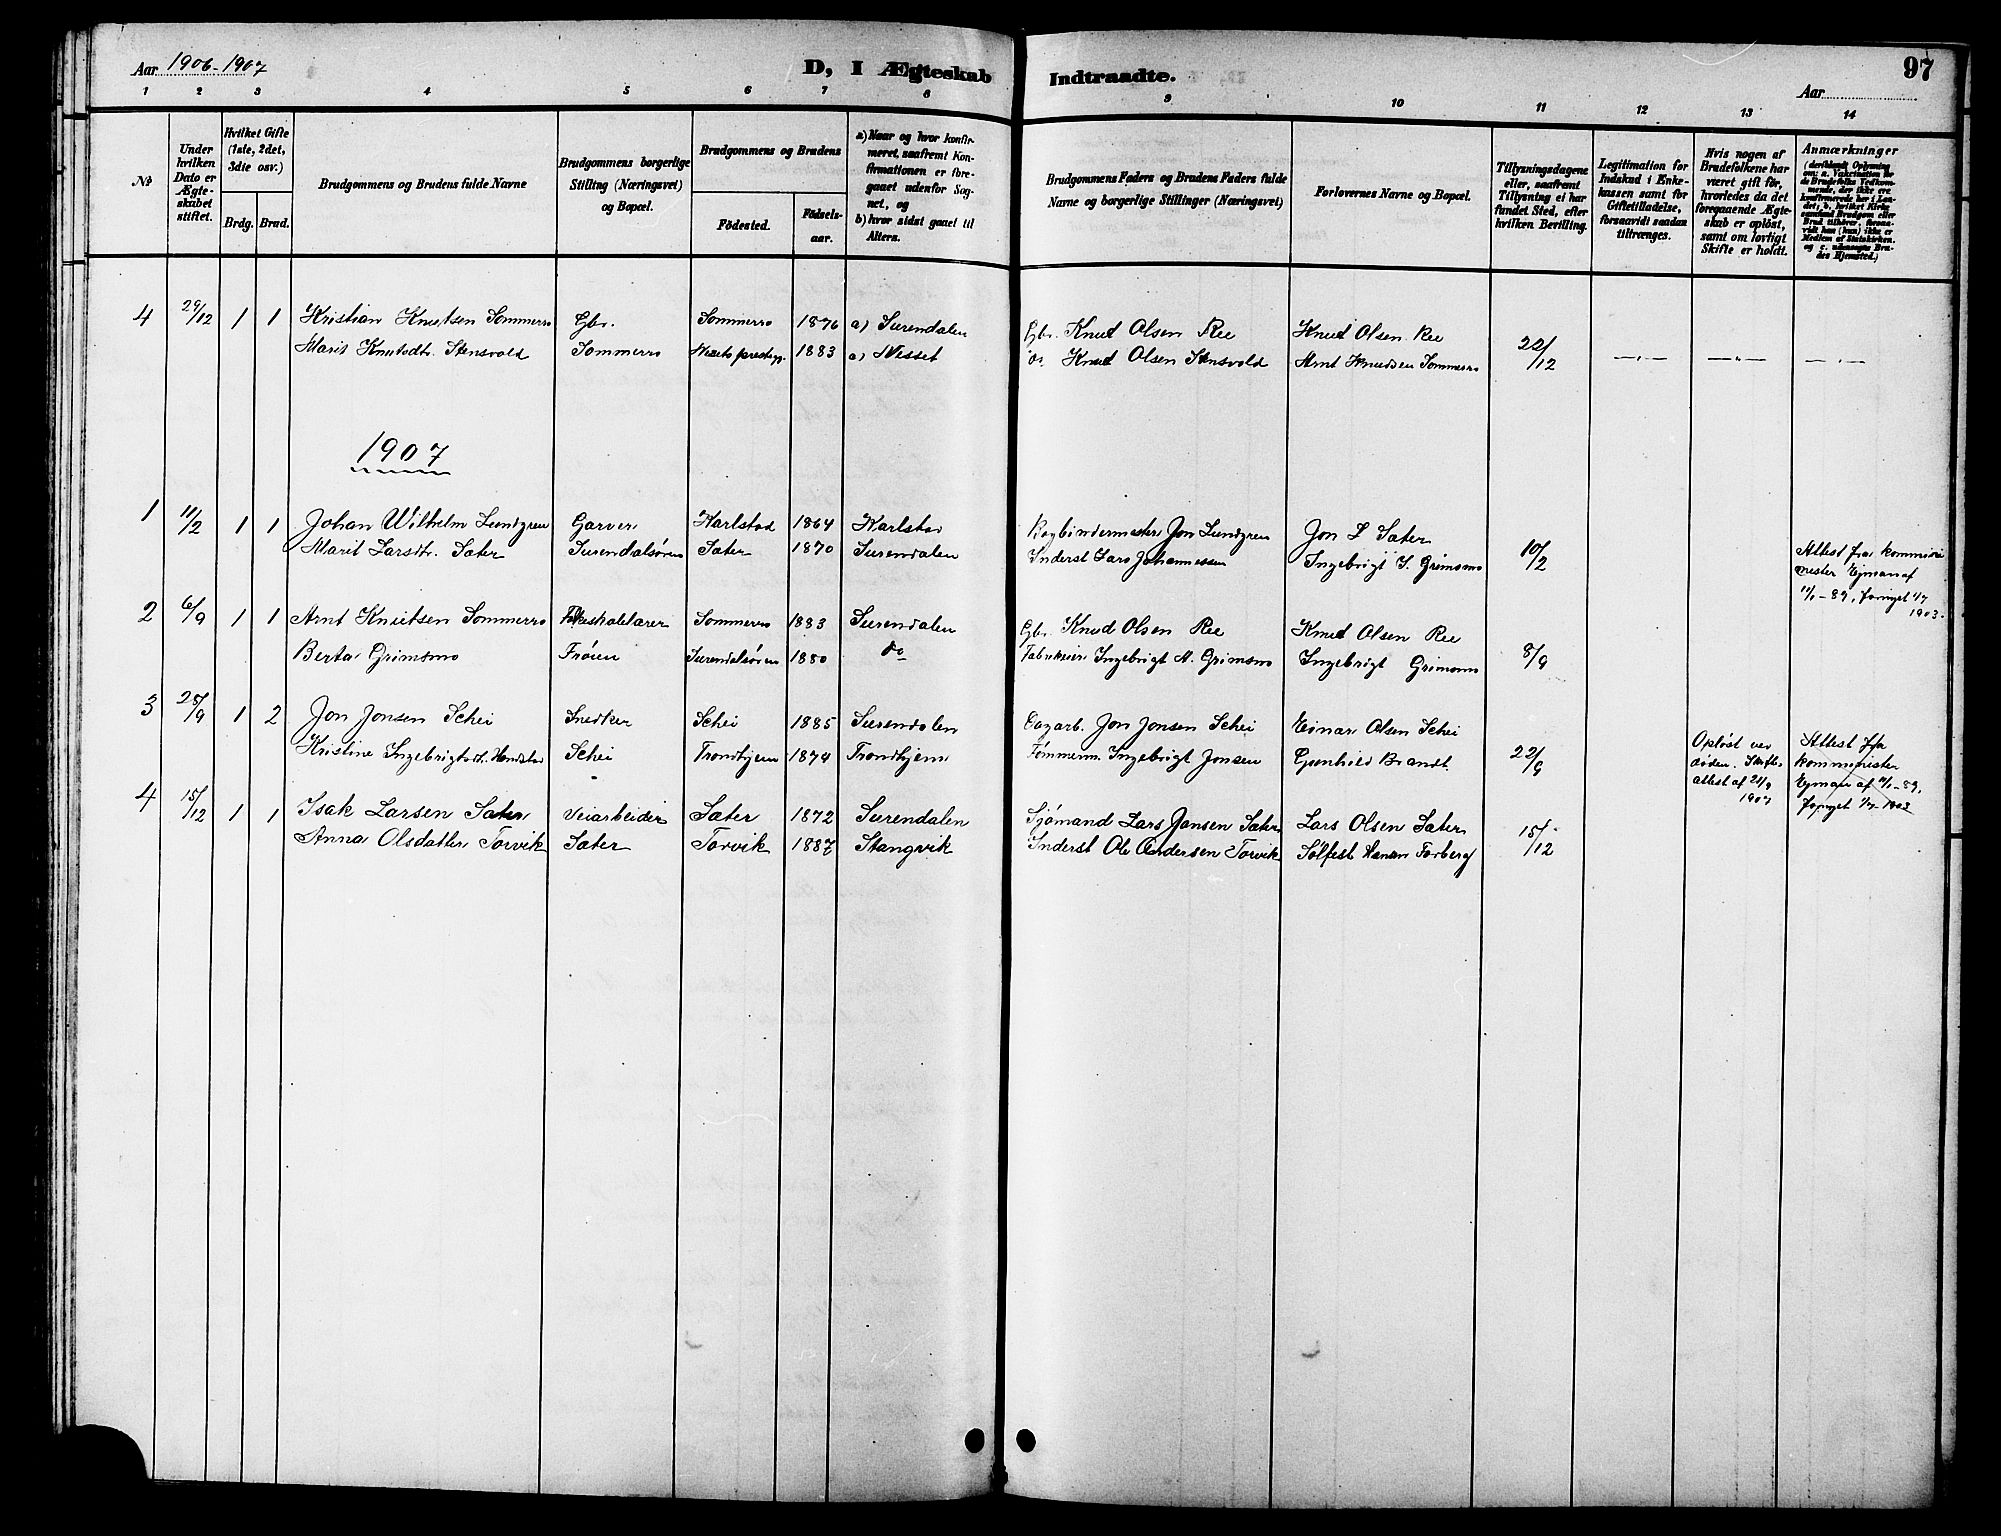 Aar 1906-1907
D, I Ægteskab Indtraadte.
97
Aar
1 2 3 4 5 6 7 8 9 10 11 12 13 14
No
Under hvilken Dato er Ægteskabet stiftet.
Hvilket Gifte (1ste, 2det, 3die osv.)
Brdg. Brud.
Brudgommens og Brudens fulde Navne
Brudgommens borgerlige Stilling (Næringsvei) og Bopæl.
Brudgommens og Brudens
Födested.
Födselsaar.
a) Naar og hvor konfirmeret, saafremt Konfirmationen er foregaaet udenfor Sognet, og
b) hvor sidst gaaet til Alters.
Brudgommens Faders og Brudens Faders fulde Navne og borgerlige Stillinger (Næringsvei)
Forlovernes Navne og Bopæl.
Tillysningsdagene eller, saafremt Tillysning ei har fundet Sted, efter hvilken Bevilling.
Legitimation for Indskud i Enkekassen samt for Giftetilladelse, forsaavidt saadan tiltrænges.
Hvis nogen af Brudefolkene har været gift för, hvorledes da det foregaaende Ægteskab er oplöst, samt om lovligt Skifte er holdt.
Anmærkninger
4 29/12 1 1 Kristian Knutsen Sommerro Gbr. Sommerro 1876 a) Surendalen Gbr. Knud Olsen Ree Knud Olsen Ree 22/12
Marit Knutsdtr. Stensvold Sommerro 1883 a) Nesset Knud Olsen Stensvold Arnt Knudsen Sommerro
1907
1 11/2 1 1 Johan Wilhelm Lundgren Garver Karlstad 1864 Karlstad Bogbindermester Jon Lundgren Jon L Sæter 10/2
Marit Larsdtr. Sæter Surendalsøren Sæter 1870 Surendalen Inderst Lars Johannessen Ingebrigt I. Grimsmo
Attest fra kommini
mester Ejman af
11/1-89, fornyet 1/7
1903.
2 6/9 1 1 Arnt Knutsen Sommerro Sommerro 1883 Surendalen Gbr. Knud Olsen Ree Knud Olsen Ree 8/9
Berta Grimsmo Frøien Surendalsøren 1880 do Fabrikeier Ingebrigt A. Grimsmo Ingebrigt Grimsmo
3 28/9 1 2 Jon Jonsen Schei Snedker Schei 1885 Surendalen Dagarb. Jon Jonsen Schei Einar Olsen Schei 22/9
Kristine Ingebrigtsdt. Schei Trondhjem 1874 Trondhjem Tømmerm. Ingebrigt Jonsen Gunhild Brandt
Opløst ved
døden. Skifte-
attest af
1907
Attest fra
komminister
Ejman af 11/1-89,
fornyet 1/7-1903
4 15/12 1 1 Isak Larsen Sæter Veiarbeider Sæter 1872 Surendalen Sjømand Lars Jonsen Sæter Lars Olsen Sæter 15/12
Anna Olsdatter Torvik Sæter Torvik 1887 Stangvik Inderst Ole Andersen Torvik Sølfest Hansen Torberg